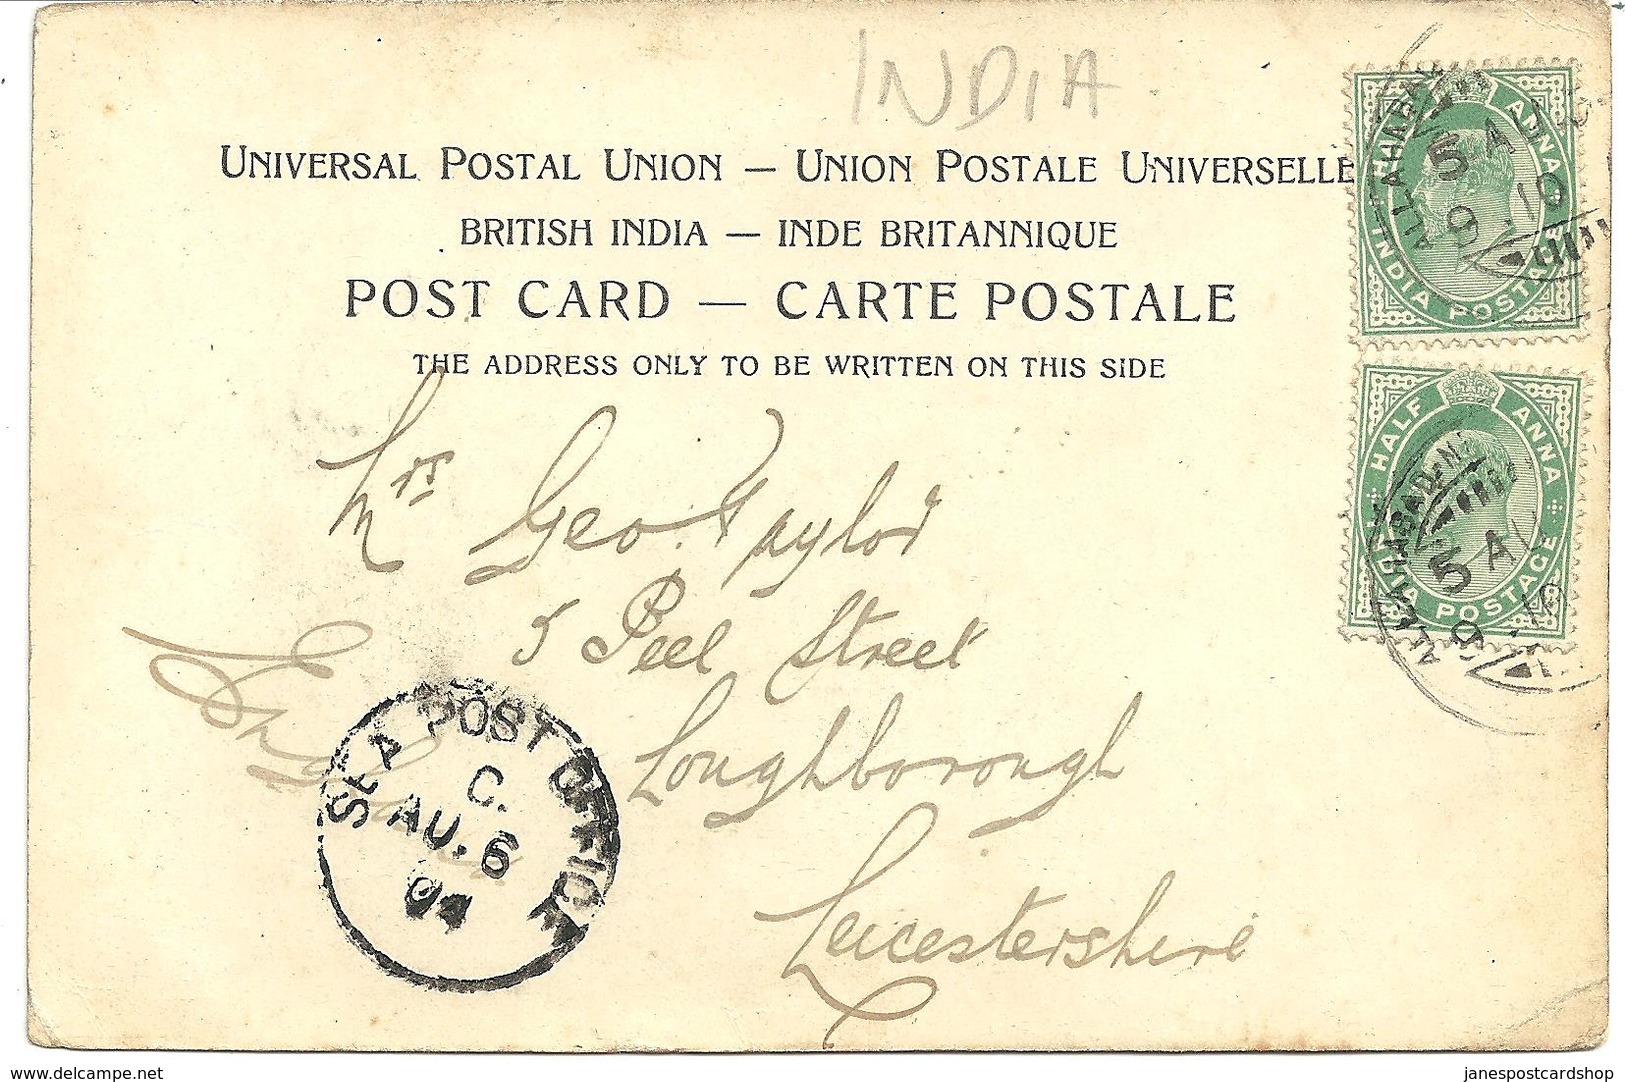 INDIA
UNIVERSAL POSTAL UNION — UNION POSTALE UNIVERSELLE
BRITISH INDIA — INDE BRITANNIQUE
POST CARD — CARTE POSTALE
THE ADDRESS ONLY TO BE WRITTEN ON THIS SIDE
ANNA
INDIA POSTAGE
ALLAHABA
5 AU
9 .10
HALF ANNA
INDIA POSTAGE
ALLAHABAD
5 AU
9 .10
Mrs Geo. Taylor
5 Peel Street
Loughborough
Leicestershire
England
SEA POST OFFICE
C.
AU. 6
04
delcampe.net
janespostcardshop